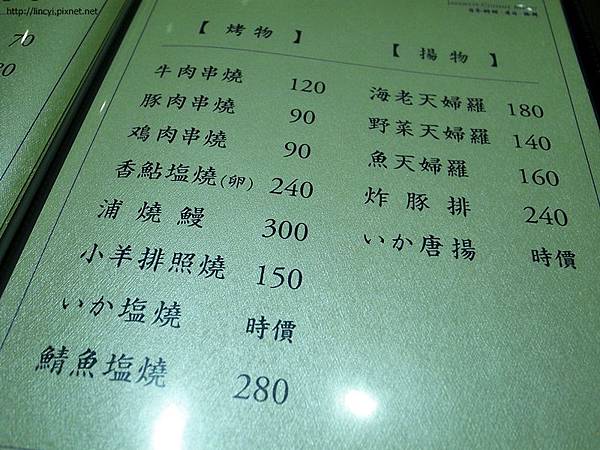 http://lincyi.pixnet.net
70
【 烤 物 】
牛肉串燒 120
豚肉串燒 90
鶏肉串燒 90
香鮎塩燒(卵) 240
浦燒鰻 300
小羊排照燒 150
いか塩燒 時價
鯖魚塩燒 280
【 揚 物 】
海老天婦羅 180
野菜天婦羅 140
魚天婦羅 160
炸豚排 240
いか唐揚 時價